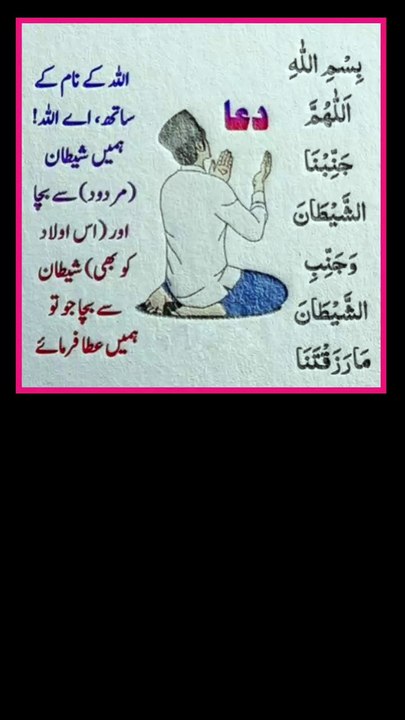 دعا
بِسْمِ اللهِ
اَللّٰهُمَّ
جَنِّبْنَا
الشَّيْطَانَ
وَجَنِّبِ
الشَّيْطَانَ
مَارَزَقْتَنَا
اللہ کے نام کے
ساتھ، اے اللہ!
ہمیں شیطان
(مردود) سے بچا
اور (اس اولاد
کو بھی) شیطان
سے بچا جو تو
ہمیں عطا فرمائے